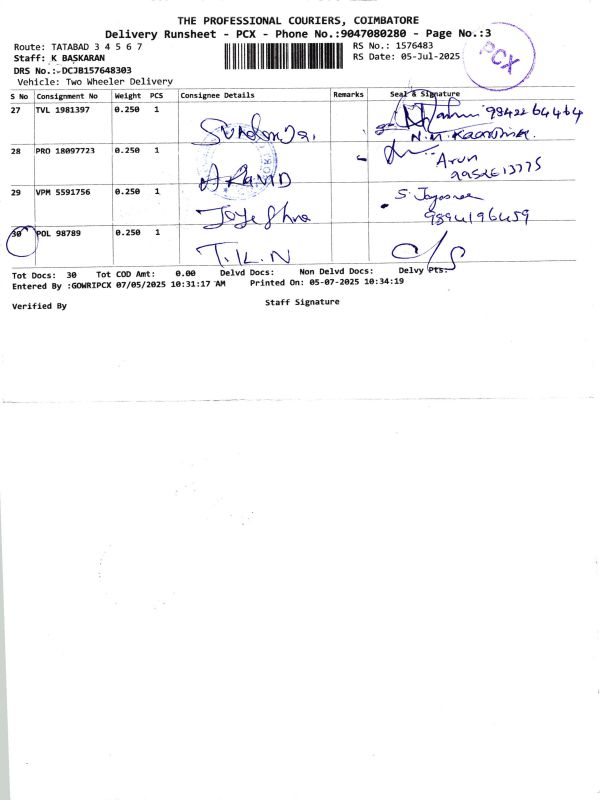 THE PROFESSIONAL COURIERS, COIMBATORE
Delivery Runsheet - PCX - Phone No.:9047080280 - Page No.:3
Route: TATABAD 3 4 5 6 7
RS No.: 1576483
Staff: K BASKARAN
RS Date: 05-Jul-2025
PCX
DRS No.:-DCJB157648303
Vehicle: Two Wheeler Delivery
S No Consignment No Weight PCS Consignee Details Remarks Seal & Signature
27 TVL 1981397 0.250 1
28 PRO 18097723 0.250 1 ARAVIND Arun
29 VPM 5591756 0.250 1 S. Jayasree
9894196459
30 POL 98789 0.250 1 T.K.N
Tot Docs: 30 Tot COD Amt: 0.00 Delvd Docs: Non Delvd Docs: Delvy Pts:
Entered By :GOWRIPCX 07/05/2025 10:31:17 AM Printed On: 05-07-2025 10:34:19
Verified By Staff Signature